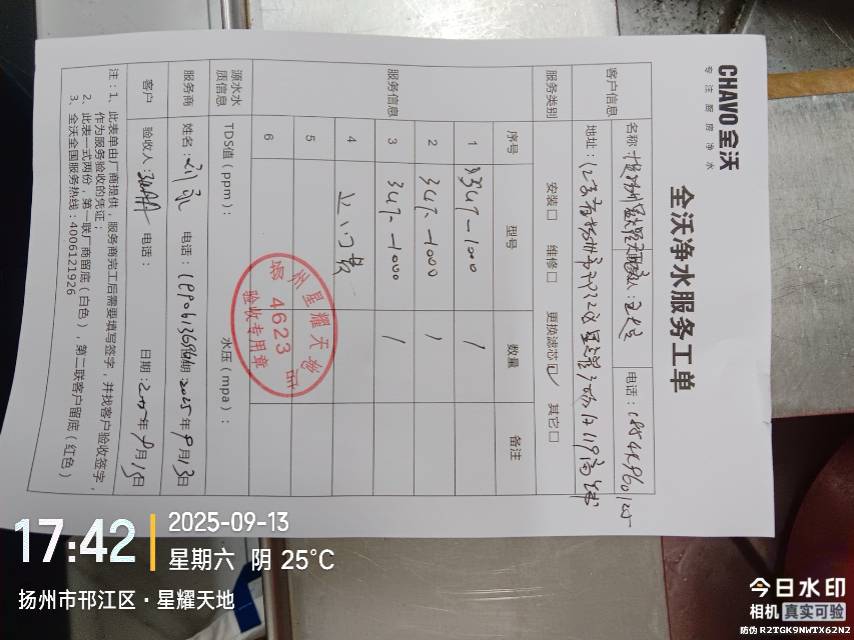 CHAVO 全沃
专注厨房净水
全沃净水服务工单
客户信息
名称：
电话：
地址：
服务类别
安装□ 维修□ 更换滤芯☑ 其它□
服务信息
序号 型号 数量 备注
1 3347-1000 1
2 347-1000 1
3 347-1000 1
4 上门费
5
6
源水水质信息
TDS值（ppm）： 水压（mpa）：
服务商
姓名： 电话： 日期：2025年9月13日
客户
验收人： 电话： 日期：2025年9月13日
注：1、此表单由厂商提供，服务商完工后需要填写签字，并找客户验收签字，
作为服务验收的凭证；
2、此表一式两份，第一联厂商留底（白色），第二联客户留底（红色）
3、全沃全国服务热线：4006121926
扬州星耀天地
4623
验收专用章
17:42
2025-09-13
星期六 阴 25°C
扬州市邗江区·星耀天地
今日水印
相机 真实可验
防伪 R2TGK9NWTX62N2